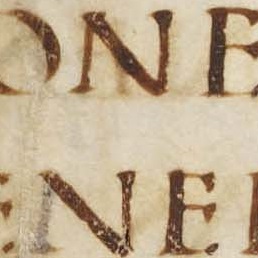 ONE
ENEI